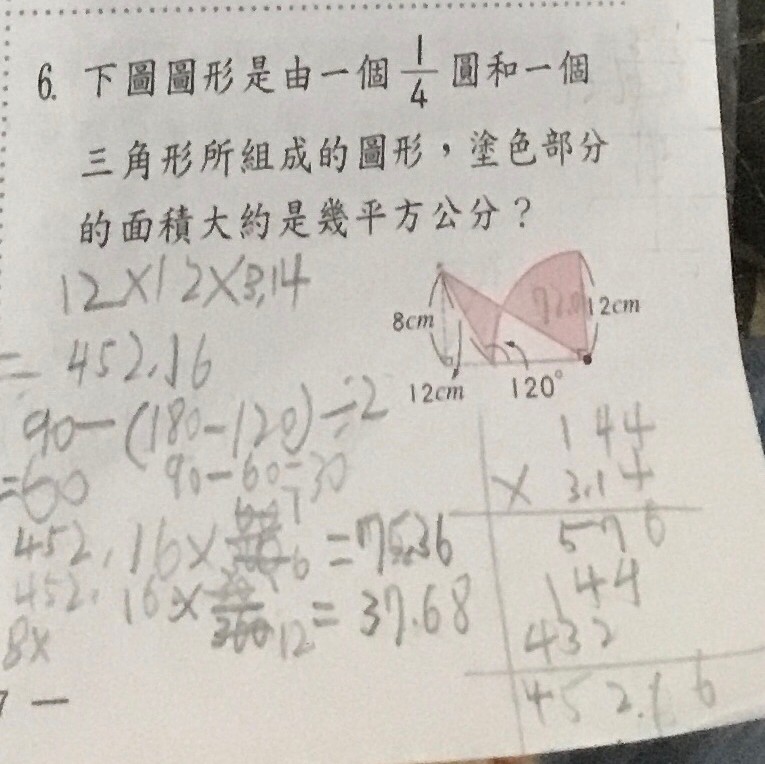 6. 下圖圖形是由一個 1/4 圓和一個
三角形所組成的圖形，塗色部分
的面積大約是幾平方公分？
12×12×3.14
= 452.16
90-(180-120)÷2
=60 90-60=30
452.16× =75.36
452.16× =37.68
8×
8cm
12cm
12cm
120°
144
× 3.14
576
144
432
452.16